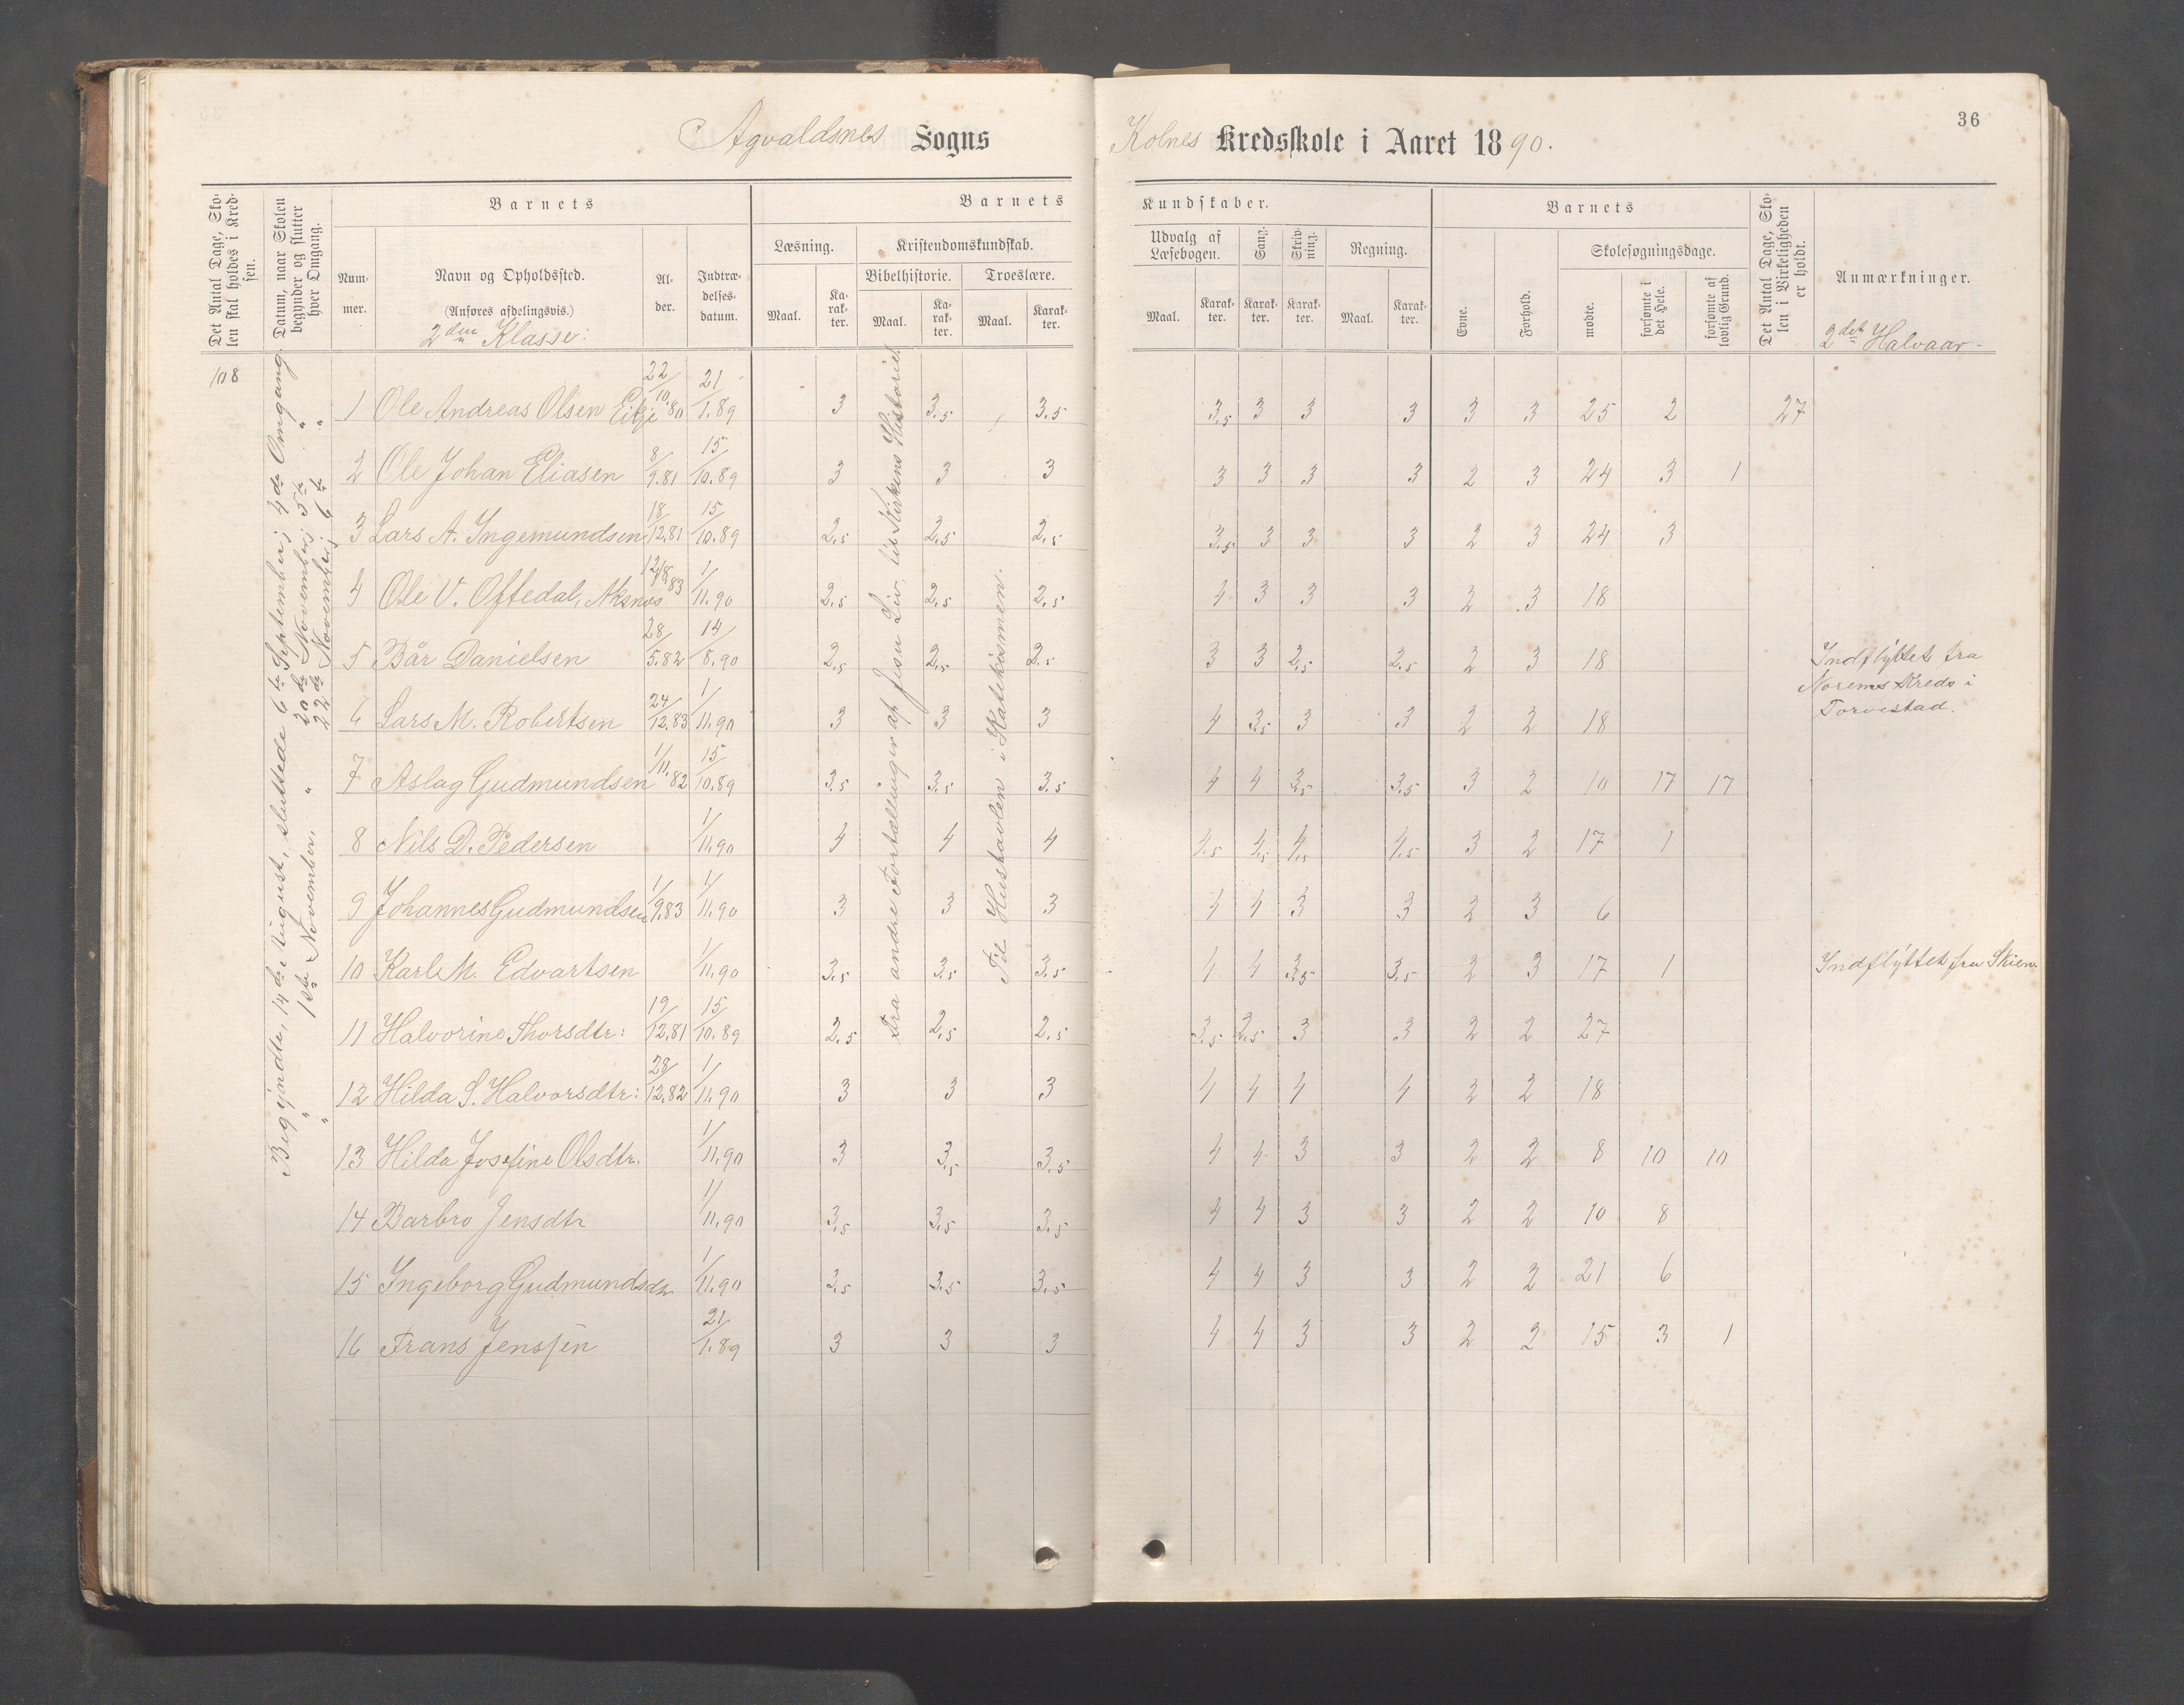 36
Agvaldsnes Sogns Kolnes Kredsskole i Aaret 1890.
Det Antal Dage, Skolen skal holdes i Kredsen.
Datum, naar Skolen begynder og slutter hver Omgang.
Barnets
Nummer.
Navn og Opholdssted.
(Anføres afdelingsvis.)
2den Klasse:
Alder.
Indtrædelsesdatum.
Barnets Kundskaber.
Læsning.
Maal.
Karakter.
Kristendomskundskab.
Bibelhistorie.
Maal.
Karakter.
Troeslære.
Maal.
Karakter.
Udvalg af Læsebogen.
Maal.
Karakter.
Sang.
Karakter.
Skrivning.
Karakter.
Regning.
Maal.
Karakter.
Barnets
Evne.
Forhold.
Skolesøgningsdage.
mødte.
forsømte i det Hele.
forsømte af lovlig Grund.
Det Antal Dage, Skolen i Virkeligheden er holdt.
Anmærkninger.
2det Halvaar.
108
Begyndte, 14de August, sluttede 6te September; 4de Omgang.
" 1ste November, " 20de November; 5te "
" " 22de November; 6te "
Fra andre Fortællinger af Jesu Liv, til Kirkens Historie.
Til Hustavlen i Katekismen.
1 Ole Andreas Olsen Eikje 22/10.80 21/1.89 3 3.5 3.5 3.5 3 3 3 3 3 25 2 27
2 Ole Johan Eliasen 8/9.81 15/10.89 3 3 3 3 3 3 3 2 3 24 3 1
3 Lars A. Ingemundsen 18/12.81 15/10.89 2.5 2.5 2.5 3.5 3 3 3 2 3 24 3
4 Ole V. Oftedal, Aksnes 12/8.83 1/11.90 2.5 2.5 2.5 4 3 3 3 2 3 18
5 Bår Danielsen 28/5.82 14/8.90 2.5 2.5 2.5 3 3 2.5 2.5 2 3 18 Indflyttet fra
Norems Kreds i
Torvestad.
6 Lars M. Robertsen 24/12.83 1/11.90 3 3 3 4 3.5 3 3 2 2 18
7 Aslag Gudmundsen 1/11.82 15/10.89 3.5 3.5 3.5 4 4 3.5 3.5 3 2 10 17 17
8 Nils D. Pedersen 1/11.90 4 4 4 4.5 4.5 4.5 4.5 3 2 17 1
9 Johannes Gudmundsen 1/9.83 1/11.90 3 3 3 4 4 3 3 2 3 6
10 Karl M. Edvartsen 1/11.90 3.5 3.5 3.5 4 4 3.5 3.5 2 3 17 1 Indflyttet fra Skien
11 Halvorine Thorsdtr: 19/12.81 15/10.89 2.5 2.5 2.5 3.5 2.5 3 3 2 2 27
12 Hilda S. Halvorsdtr: 28/12.82 1/11.90 3 3 3 4 4 4 4 2 2 18
13 Hilda Josefine Olsdtr. 1/11.90 3 3.5 3.5 4 4 3 3 2 2 8 10 10
14 Barbro Jensdtr 1/11.90 3.5 3.5 3.5 4 4 3 3 2 2 10 8
15 Ingeborg Gudmundsdtr 1/11.90 3.5 3.5 3.5 4 4 3 3 2 2 21 6
16 Frans Jensen 21/1.89 3 3 3 4 4 3 3 2 2 15 3 1